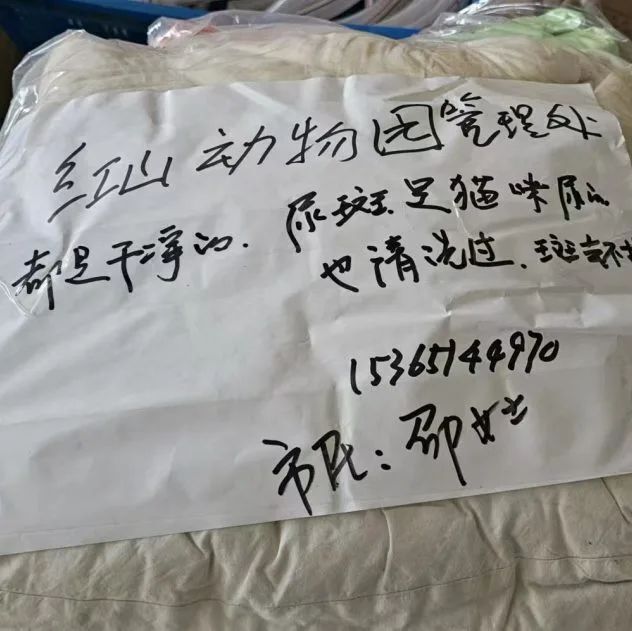 红山动物园管理处
都是干净的. 尿斑是猫咪尿的
也清洗过.斑
15365144970
市民:邵女士